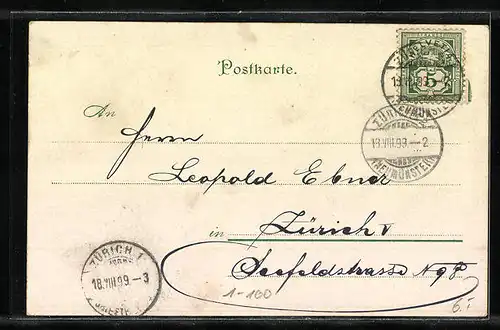 Postkarte.
ZÜRICH
(NEUMÜNSTER)
18.VIII.99.–2
An
Herrn
Leopold Ebner
in Zürich V
Seefeldstrasse
ZÜRICH 1
18.VIII.99.–3
1-100
6.-